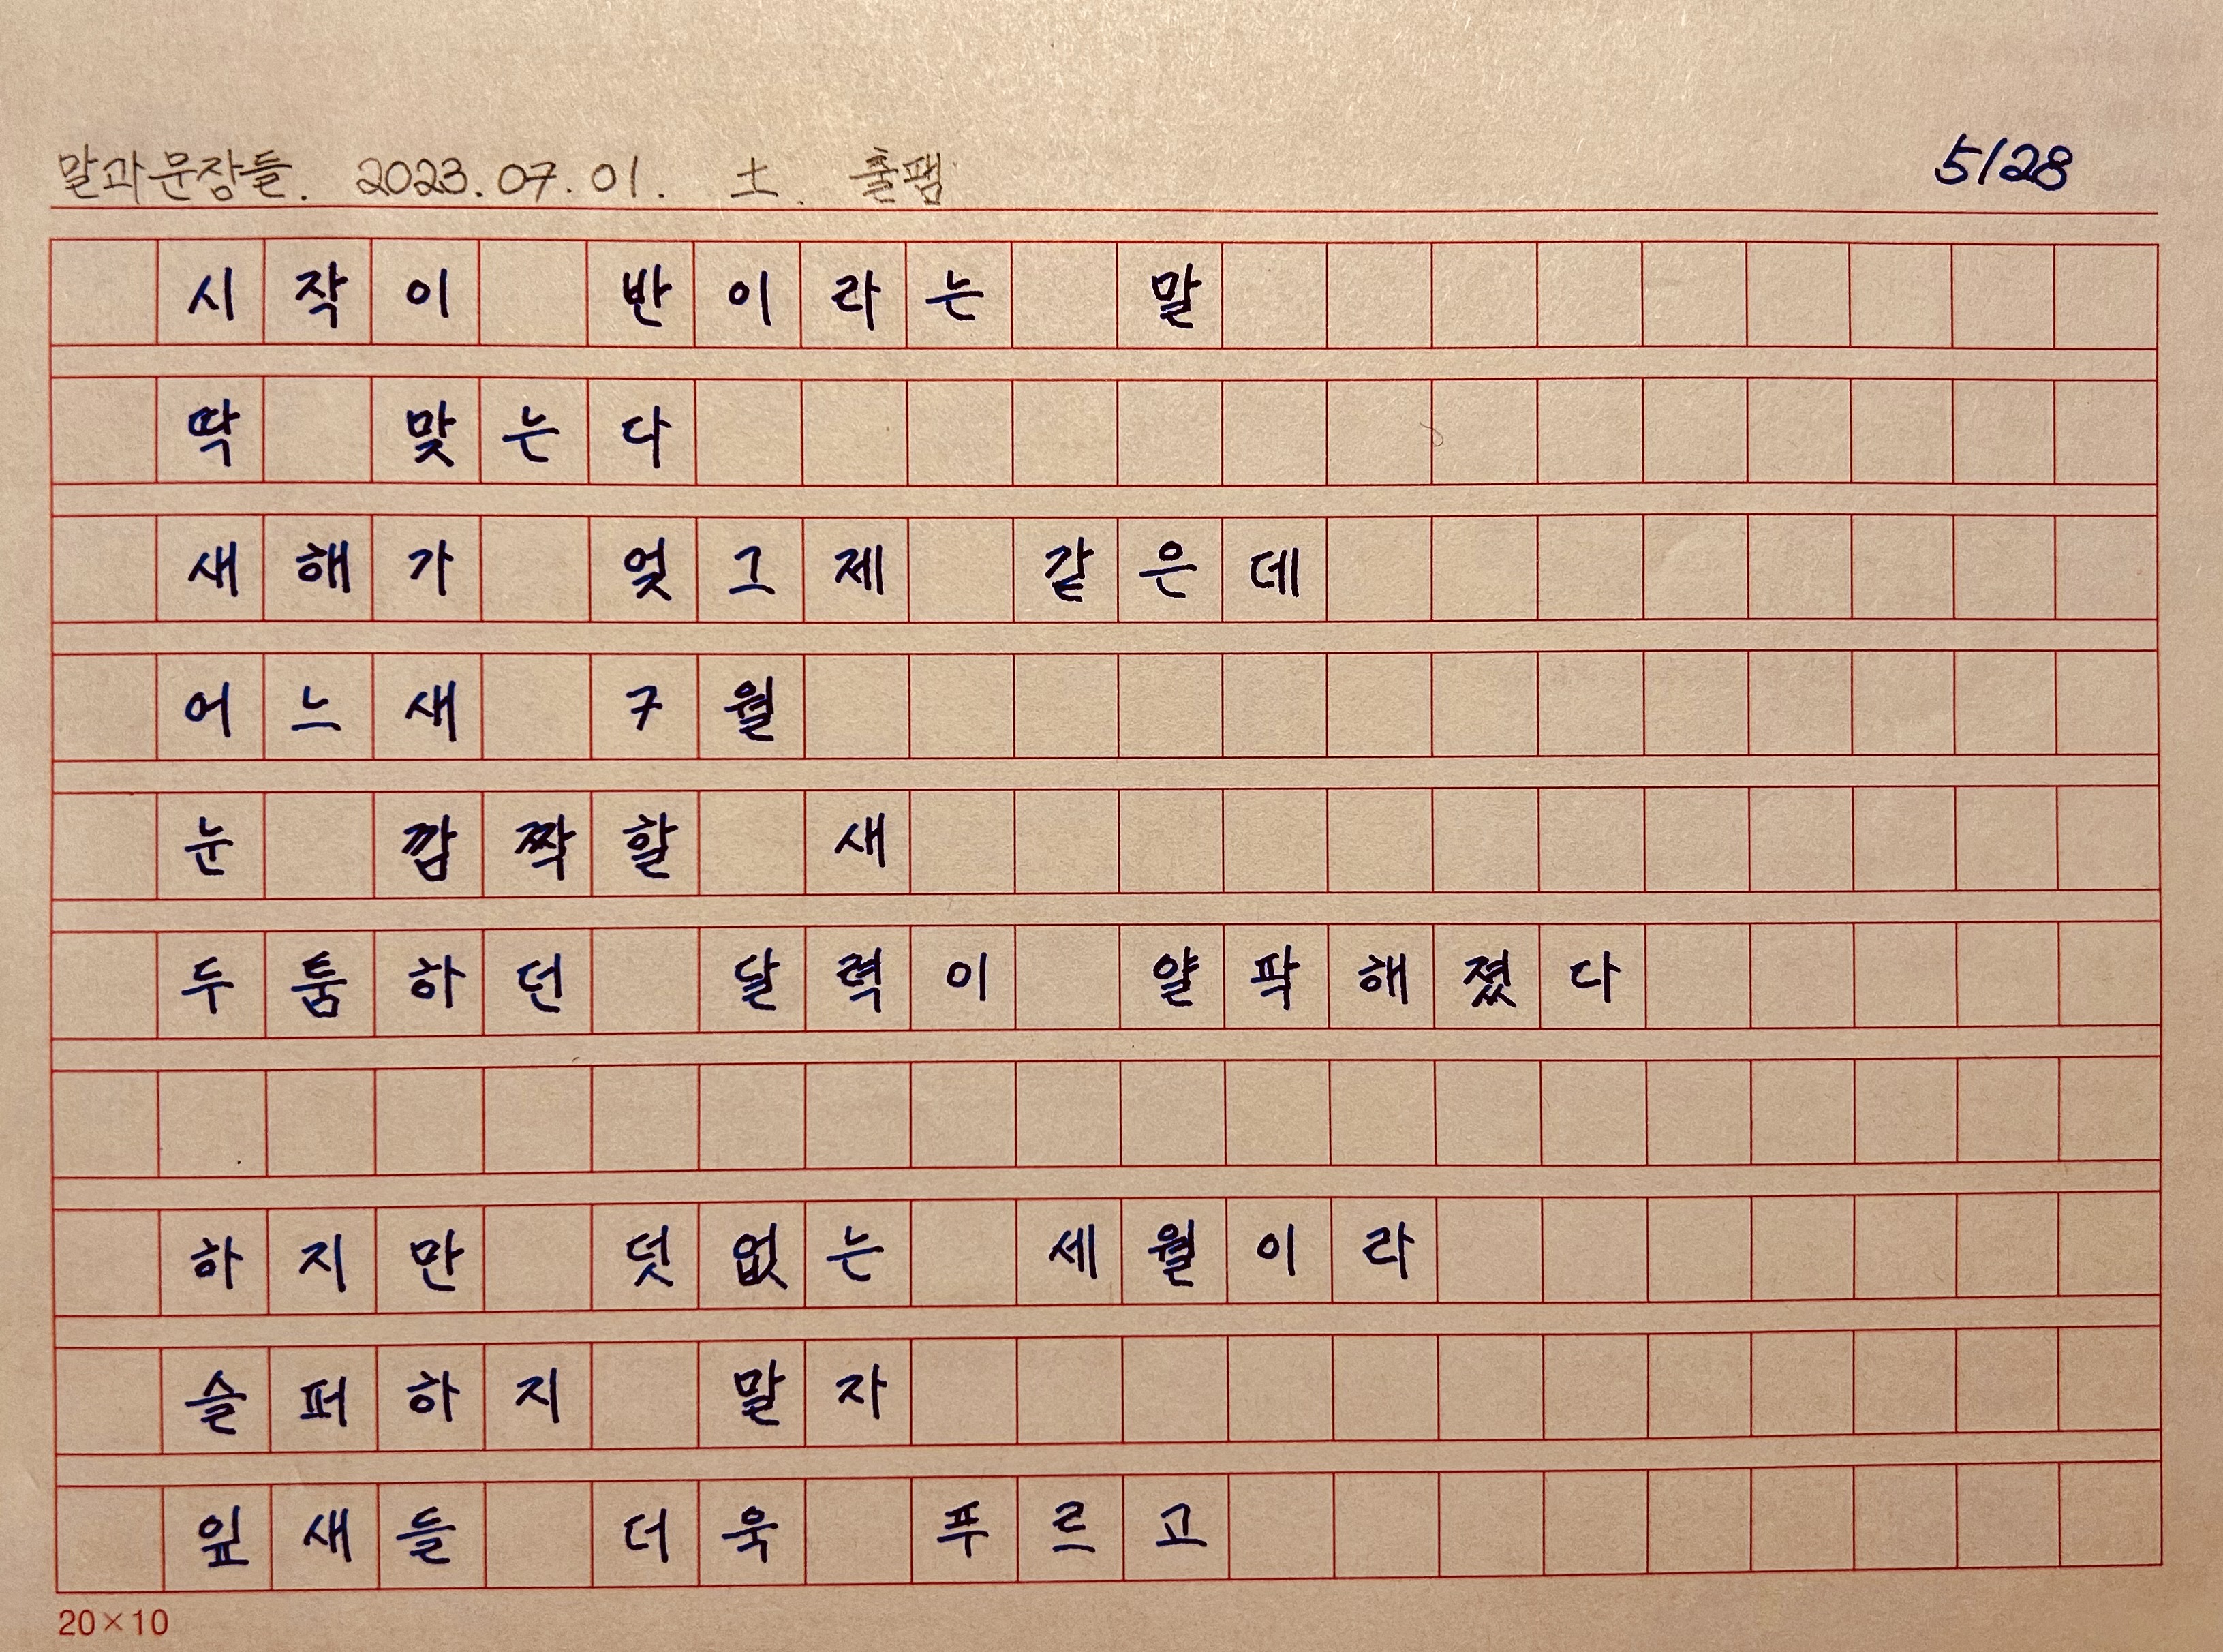 말과문장들. 2023.07.01. 土. 출팸 5128
시작이 반이라는 말
딱 맞는다
새해가 엊그제 같은데
어느새 7월
눈 깜짝할 새
두툼하던 달력이 얄팍해졌다
하지만 덧없는 세월이라
슬퍼하지 말자
잎새들 더욱 푸르고
20×10